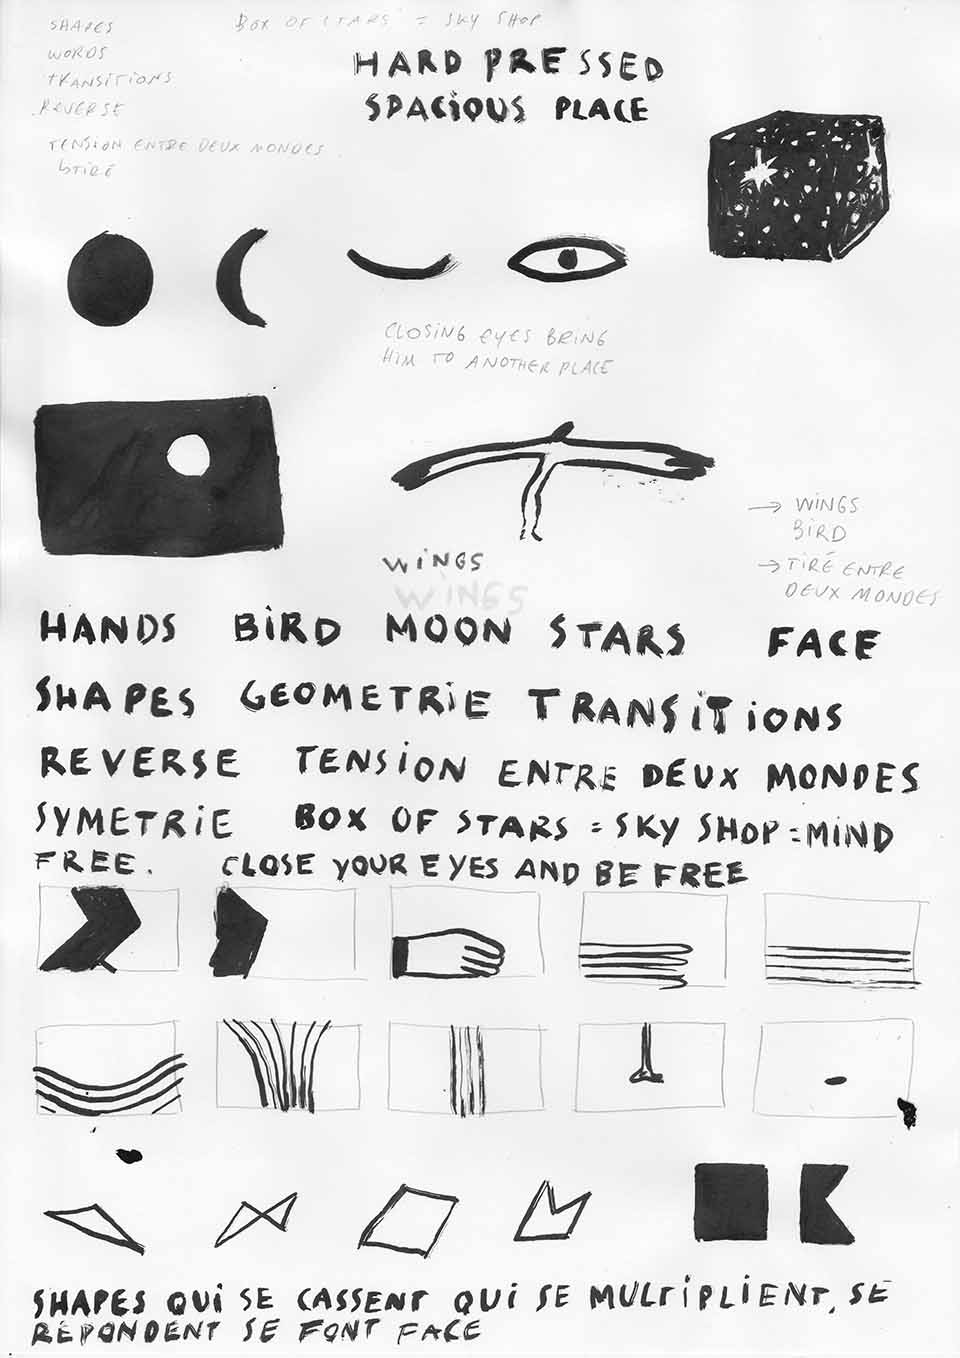 SHAPES
WORDS
TRANSITIONS
REVERSE
TENSION ENTRE DEUX MONDES
ÉTIRÉ
BOX OF STARS = SKY SHOP
HARD PRESSED
SPACIOUS PLACE
CLOSING EYES BRING
HIM TO ANOTHER PLACE
→ WINGS
BIRD
→ TIRÉ ENTRE
DEUX MONDES
WINGS
WINGS
HANDS BIRD MOON STARS FACE
SHAPES GEOMETRIE TRANSITIONS
REVERSE TENSION ENTRE DEUX MONDES
SYMETRIE BOX OF STARS = SKY SHOP = MIND
FREE. CLOSE YOUR EYES AND BE FREE
SHAPES QUI SE CASSENT QUI SE MULTIPLIENT, SE
REPONDENT SE FONT FACE